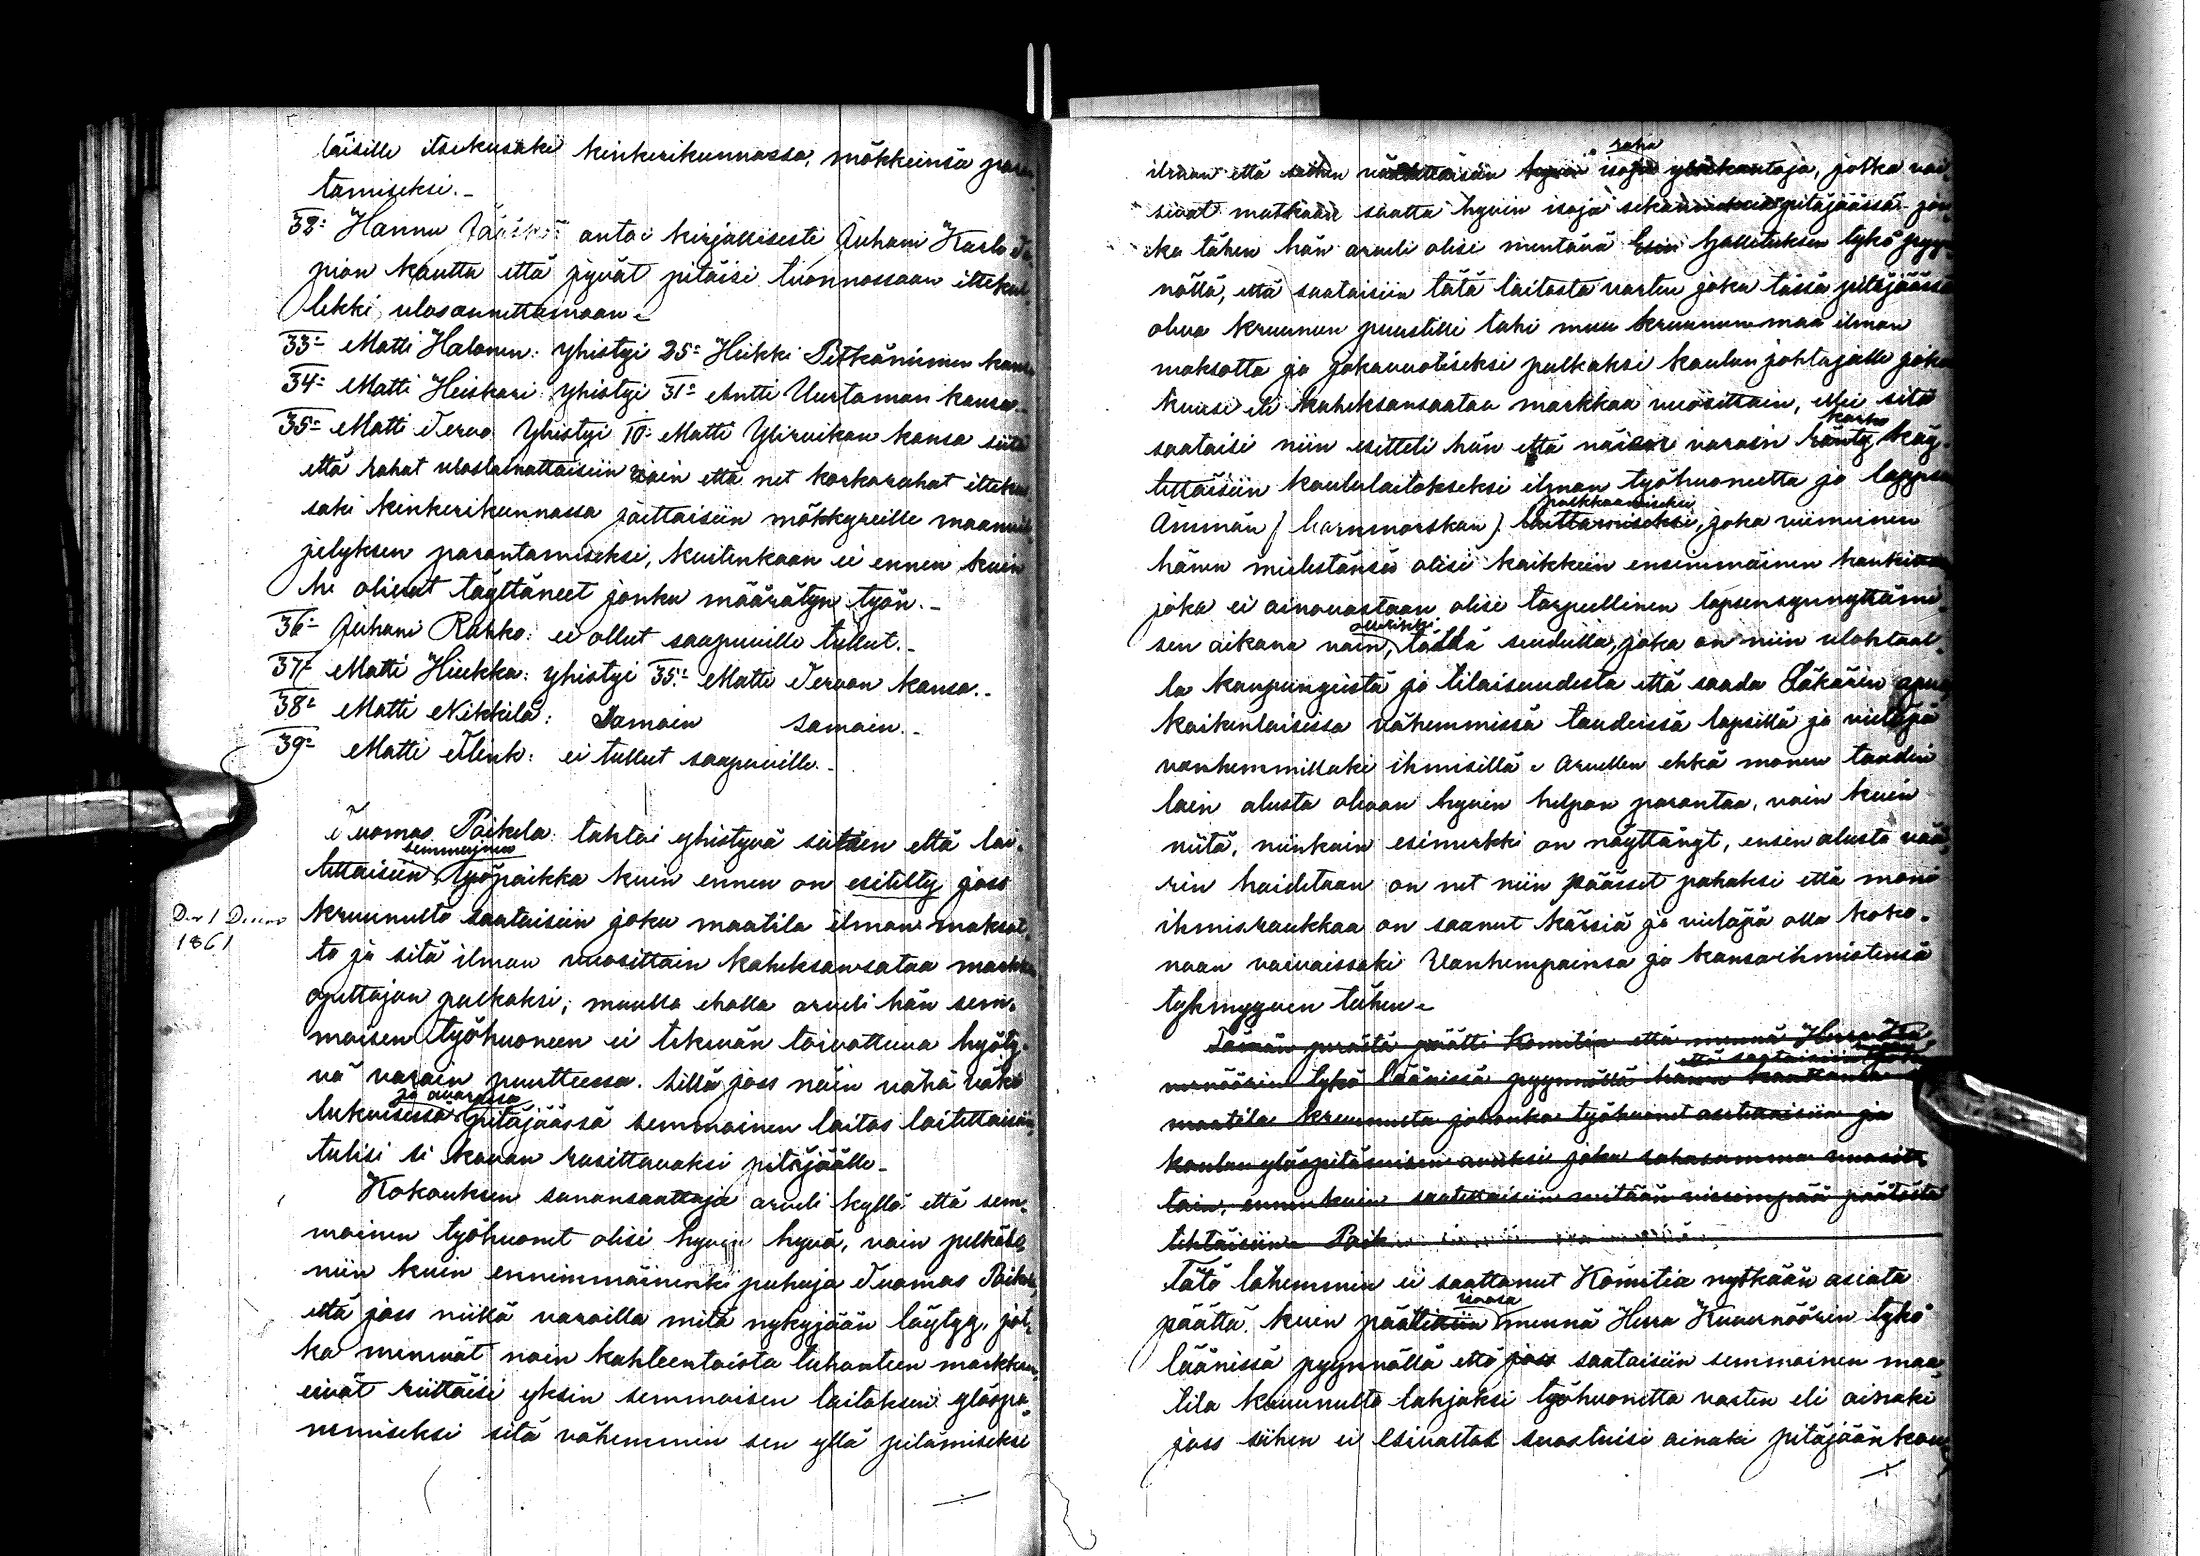 läisille itsekusaki kinkerikunnassa, mökkeinsä paran
tamiseksi.-
32: Hannu Jääskö antoi kirjallisesti Juhani Karlo Ta
pion kautta että jyvät pitäisi luonnossaan itseku
lekki ulosannettamaan.-
33: Matti Halonen: yhistyi 25: Heikki Pitkänimen kansa
34: Matti Heiskari yhistyi 31: Antti Uurtaman kansa.-
35: Matti Tervo Yhistyi 10: Matti Ylirvikan kansa siitä
että rahat uloslainattaisiin vain että net korkorahat itseku
saki kinkerikunnassa jaettaisiin mökkyreille maanvil
jelyksen parantamiseksi, kuitenkaan ei ennen kuin
he olisivat täyttäneet jonku määrätyn työn.-
36: Juhani Rahko: ei ollut saapuville tullut.-
37: Matti Hiukka: yhistyi 35: Matti Tervon kansa.-
38: Matti Nikkilä: Samoin samoin.-
39: Matti Flink: ei tullut saapuville.-
Tuomas Paikela: tahtoi yhistyvä siihen että lai-
semmoinen
tettaisiin työpaikka kuin ennen on esitelty joss
Den 1 Decemb
1861
kruunulta saataisiin joku maatila ilman maksut-
ta ja sitä ilman vuosittain kaheksansataa markkaa
opettajan palkaksi, muulla eholla arveli hän sem-
moisen työhuoneen ei tekevän toivottuva hyöty-
vä varain puutteessa. Sillä joss näin vähä väki
ja avarassa
lukuisessa pitäjäässä semmoinen laitos laitettaisiin,
tulisi se kovan rasittavaksi pitäjäälle.-
Kokouksen sanansaattaja arveli kyllä että sem-
moinen työhuonet olisi hyvin hyvä, vain pelkäsi
niin kuin ennimmäinenki puhuja Tuomas Paikela,
että joss niillä varoilla mitä nykyjään löytyy, jot-
ka menevät noin kahteentoista tuhanteen markkaan,
eivät riittäisi yksin semmoisen laitoksen ylöspa-
nemiseksi sitä vähemmin sen yllä pitämiseksi
raha
ilman että siihen isoja ylöskantoja, jotka voi-
sivat matkaan saatta hyvin isoja pitäjäässä jon-
ka tähen hän arveli olisi mentävä Esin hallituksen tykö pyy-
nöllä, että saataisiin tätä laitosta varten joku tässä pitäjäässä
oleva kruunun puustilli tahi muu kruunun maa ilman
maksotta ja jokavuotiseksi palkaksi koulun johtajalle joku
kuusi eli kaheksansataa markkaa vuosittain, Ellei sitä
korko
saataisi niin esitteli hän että näisär varain ränty käy-
tettäisiin koululaitokseksi ilman työhuoneetta ja lappsen
palkkaamiseksi
Ämmän (barnmorskan) laittamiseksi, joka viimeinen
hänen mielestänsä olisi kaikkein ensimmäinen hankittava
joka ei ainovastaan olisi tarpeellinen lapsensynnyttämi-
sen aikana vain, tällä seudulla, joka on niin ulohtaal-
la kaupungeista ja tilaisuudesta että saada Läkärin apua
kaikenlaisissa vähemmissä taudeissä lapsillä ja vieläpä
vanhemmillaki ihmisillä. Arvellen ehkä monen taudin
lain alusta olevan hyvin helpon parantaa, vain kuin
niitä, niinkuin esimerkki on näyttänyt, ensin alusta vää-
rin hoidetaan on net niin päässet pahaksi että moni
ihmisraukkaa on saanut kärsiä ja vieläpä olla koko-
naan vaivaissaki Vanhempainsa ja kansaihmistensä
tyhmyyven tähen.-
Tämän perästä päätti Komitia että mennä Herra Ku
että saataisiin joku
vernöörin tykö läänissä pyynnöllä hänen kauttansa
maatila kruunulta johonka työhuonet asetettaisiin ja
koulun ylöspitämisen avuksi joku rahasumma vuosit-
tain, ennenkuin saatettaisiin mitään visseimpää päätöstä
tehtäisiin. Paik
Tätä lähemmin ei saattanut Komitia nytkään asiata
päättä, kuin päätettiin mennä Herra Kuvernöörin tykö
läänissä pyynnöllä että joss saataisiin semmoinen maa
tila kruunulta lahjaksi työhuonetta varten eli ainaki
joss siihen ei Esivaltas suostuisi ainaki pitäjään kou